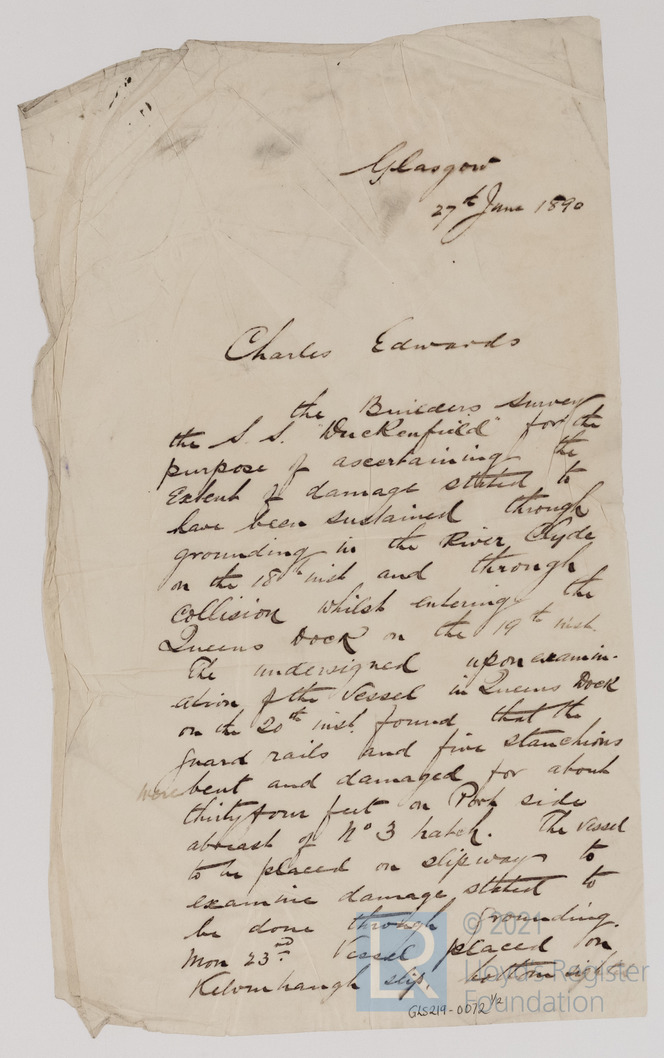 Glasgow
27th June 1890
Charles Edwards
the Builders survey
the S.S. "Duckenfield" for the
purpose of ascertaining the
Extent of damage stated to
have been sustained through
grounding in the River Clyde
on the 18th inst and through
collision whilst entering the
Queens Dock on the 19th inst.
The undersigned upon examin-
ation of the Vessel in Queens Dock
on the 20th inst. found that the
guard rails and five stanchions
were bent and damaged for about
thirty four feet on Port side
abreast of No 3 hatch. The vessel
to be placed on slipway to
examine damage stated to
be done through grounding.
Mon 23rd. Vessel placed on
Kelvinhaugh slip. bottom
GLS219-0072 1/2
© 2021
LR
Lloyd's Register
Foundation